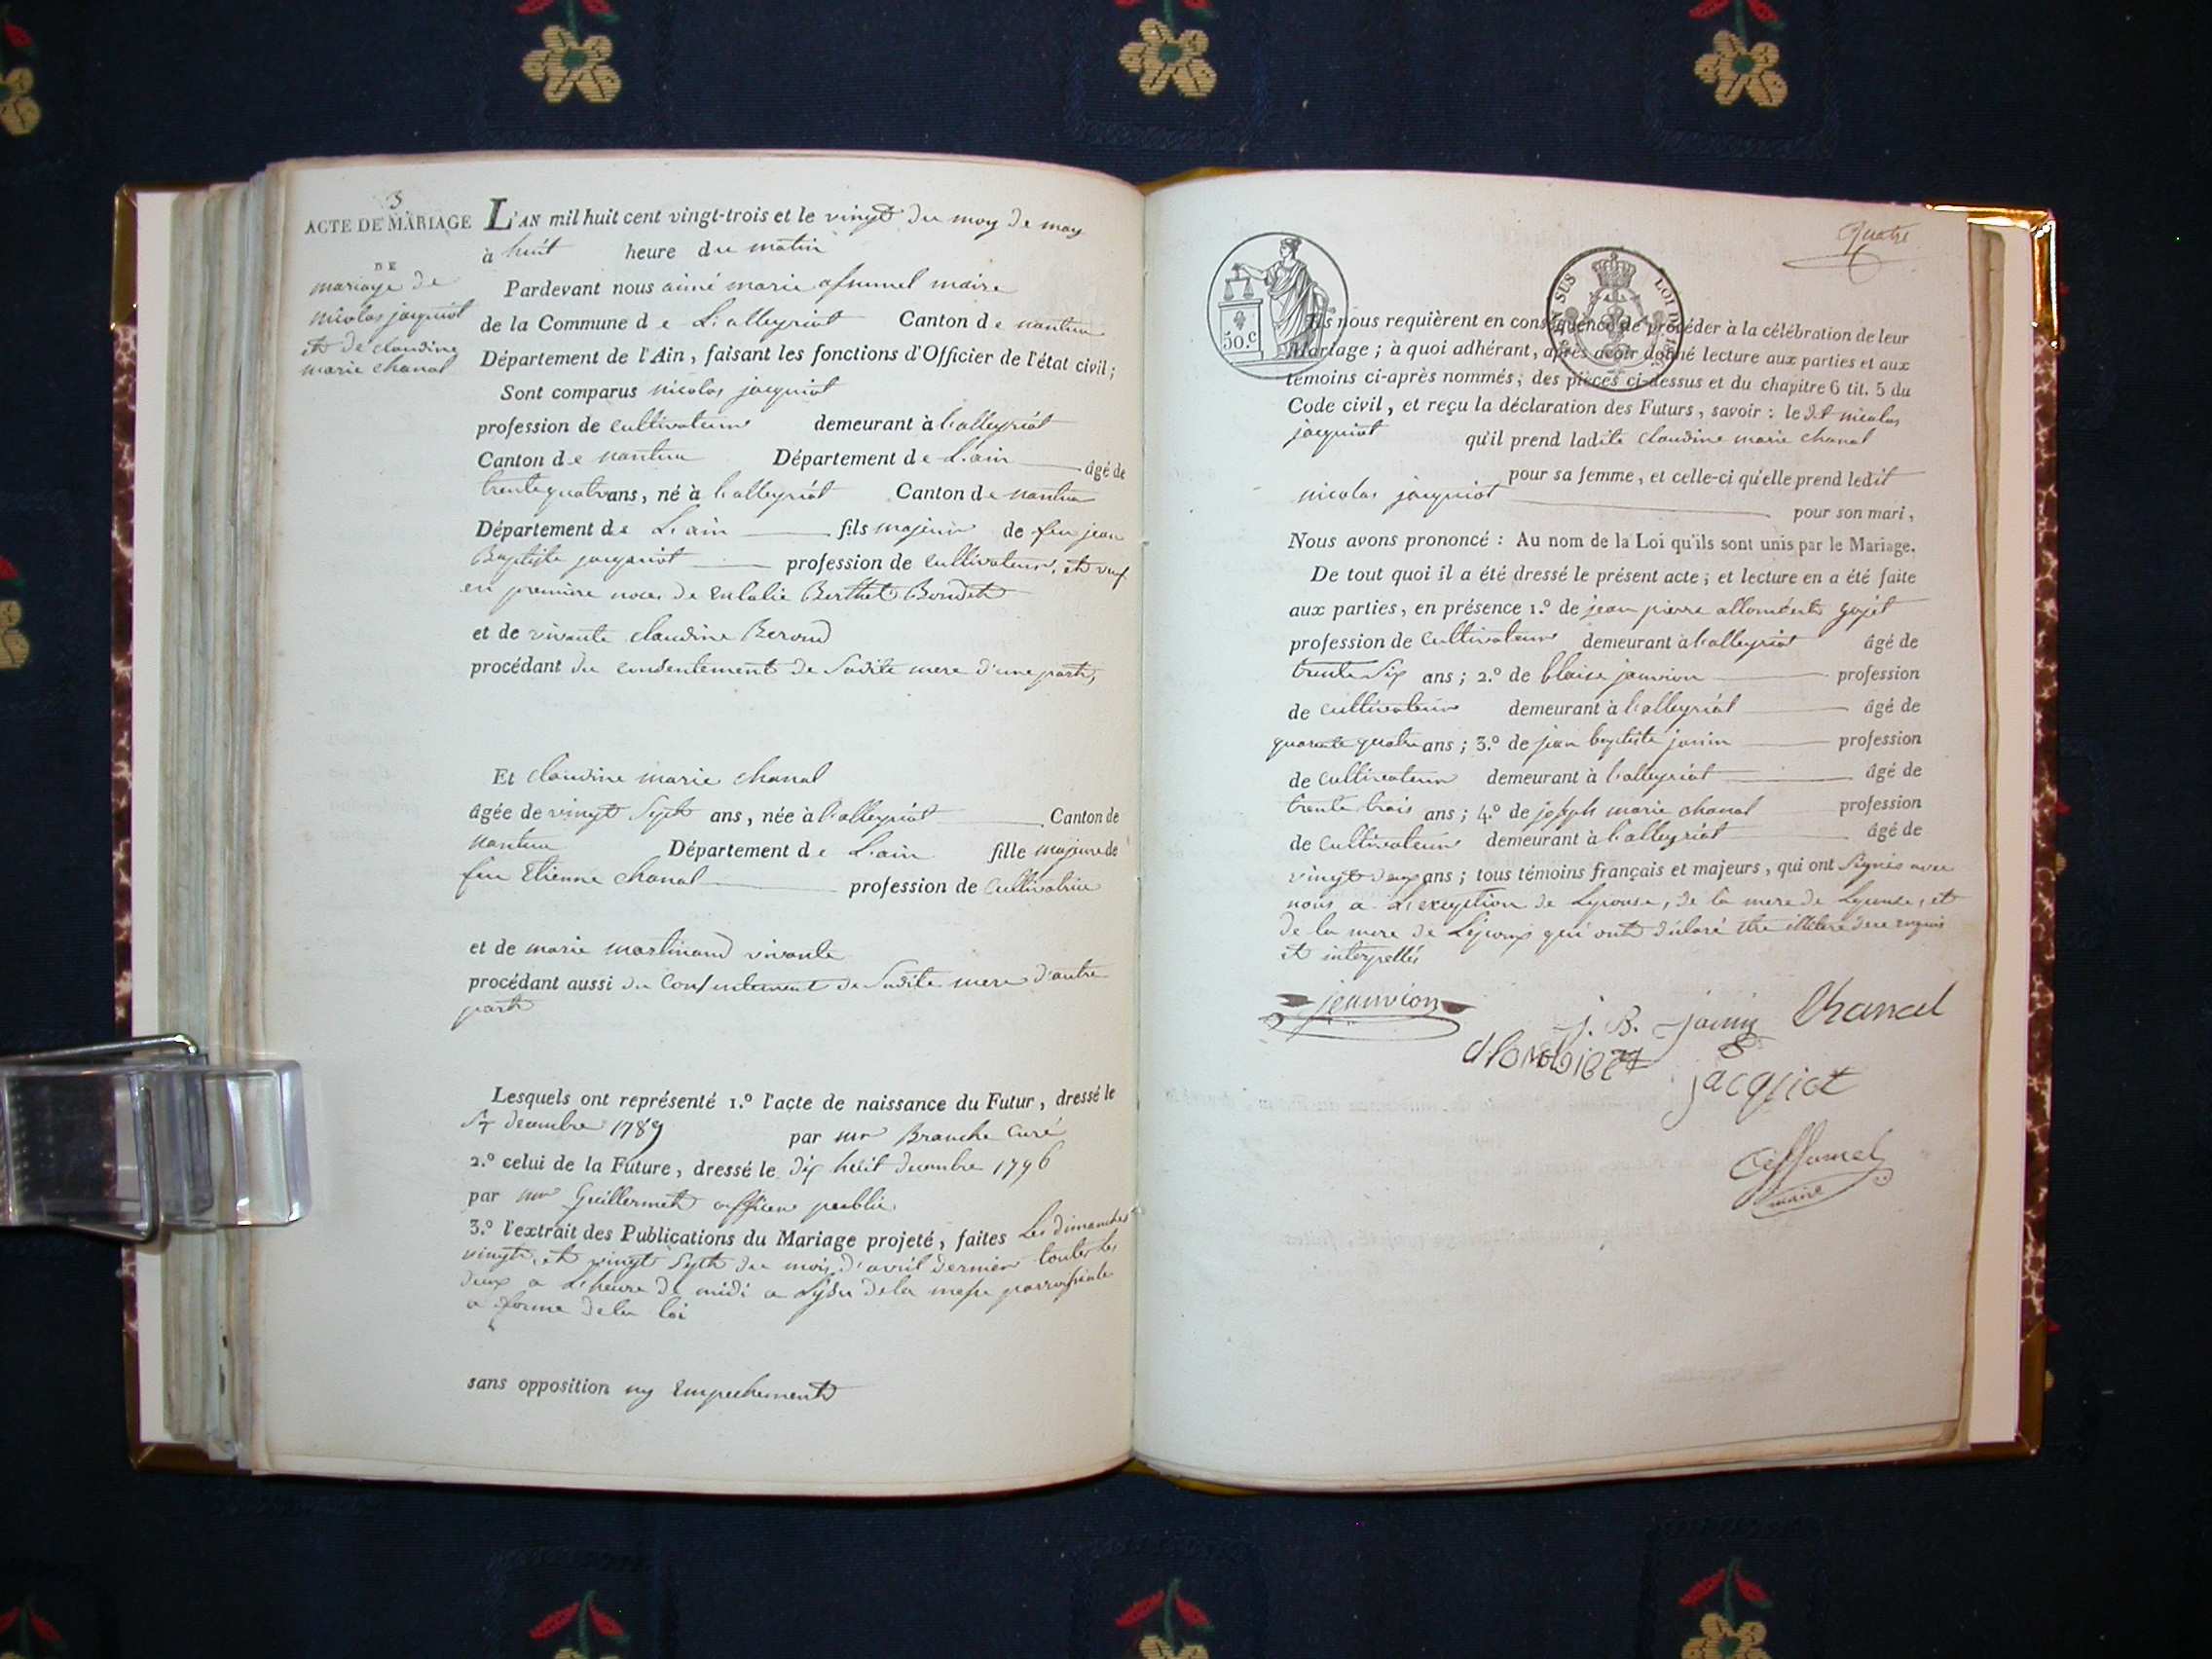 3
ACTE DE MARIAGE
DE
mariage de
nicolas jacquiot
et de claudine
marie chanal
L'AN mil huit cent vingt-trois et le vingt du moy de may
à huit heure du matin
Pardevant nous aimé marie maire
de la Commune de L'alleyriat Canton de nantua
Département de l'Ain, faisant les fonctions d'Officier de l'état civil;
Sont comparus nicolas jacquiot
profession de cultivateur demeurant à l'alleyriat
Canton de nantua Département de L'ain âgé de
trente quatre ans, né à l'alleyriat Canton de nantua
Département de L'ain fils majeur de feu jean
Baptiste jacquiot profession de cultivateur, et veuf
en premiere noces de Eulalie Berthet Bondet
et de vivante claudine Beroud
procédant du consentement de Sadite mere d'une part,
Et claudine marie chanal
âgée de vingt Sept ans, née à l'alleyriat Canton de
nantua Département de L'ain fille majeure de
feu Etienne chanal profession de Cultivatrice
et de marie martinand vivante
procédant aussi du Consentement de Sadite mere d'autre
part
Lesquels ont représenté 1.º l'acte de naissance du Futur, dressé le
decembre 1789 par mr Branche Curé
2.º celui de la Future, dressé le dix huit decembre 1796
par mr Guillermet officier public
3.º l'extrait des Publications du Mariage projeté, faites Les dimanches
vingt, et vingt Sept du mois d'avril dernier toutes les
deux a L'heure de midi a L'issu de la messe parroissiale
a forme de la loi
sans opposition ny Empechement
Quatre
50.c
SUS
LOI DE
Ils nous requièrent en conséquence de procéder à la célébration de leur
Mariage; à quoi adhérant, après avoir donné lecture aux parties et aux
témoins ci-après nommés, des pièces ci-dessus et du chapitre 6 tit. 5 du
Code civil, et reçu la déclaration des Futurs, savoir: le dit nicolas
jacquiot qu'il prend ladite claudine marie chanal
pour sa femme, et celle-ci qu'elle prend ledit
nicolas jacquiot
pour son mari,
Nous avons prononcé: Au nom de la Loi qu'ils sont unis par le Mariage.
De tout quoi il a été dressé le présent acte; et lecture en a été faite
aux parties, en présence 1.º de jean pierre gojet
profession de Cultivateur demeurant à l'alleyriat âgé de
trente Six ans; 2.º de blaise janvion profession
de cultivateur demeurant à l'alleyriat âgé de
quarante quatre ans; 3.º de jean baptiste janin profession
de cultivateur demeurant à l'alleyriat âgé de
trente trois ans; 4.º de joseph marie chanal profession
de Cultivateur demeurant à l'alleyriat âgé de
vingt deux ans; tous témoins français et majeurs, qui ont Signés avec
nous a L'exeption de Lepouse, de la mere de Lepouse, et
de la mere de Lepoux qui ont déclaré être illiteré de ce requis
et interpellés
jeanvion
j. B. janin Chanal
jacqiot
maire